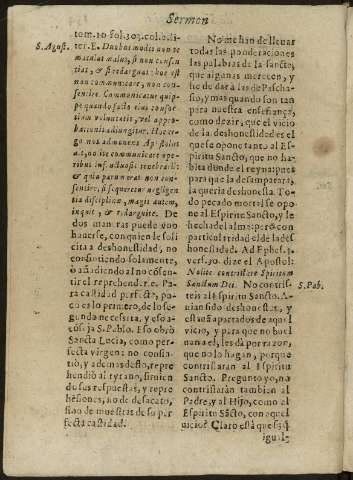 Sermon
tom. 10 fol. 303. col. 6. li-
ter. E. Duobus modis non te
maculat malus, si non consen
tias, & si redarguas: hoc est
non communicare, non con-
sentire. Communicatur quip-
pe quando facto eius consor-
tium voluntatis, vel appro-
bationis adiungitur. Hoc er-
go nos admonens Apostolus
ait, nolite communicare ope-
ribus infructuosis tenebrarum
& quia parum erat non con-
sentire, si sequeretur negligen
tia disciplinæ, magis autem,
inquit, & redarguite. De
dos maneras puede vno
hauerse, con quien le soli
cita a deshonestidad, no
consintiendo solamente,
o añadiendo al no cósen-
tir el reprehenderle. Pa-
ra castidad perfecta, po-
co es lo primero, de lo se-
gundo necessita, y eso a-
cóseja S. Pablo. Eso obró
Sancta Lucia, como per-
fecta virgen: no consin-
tió, y ademas desto, repre
hendió al tyrano, siruien
do sus respuestas, y repre
hésiones, no de desacato,
sino de muestras de su per
fecta castidad.
S. Agust.
No me han de lleuar
todas las ponderaciones
las palabras de la sancta,
que algunas merecen, y
he de dar à las de Pascha-
sio, y mas quando son tan
para nuestra enseñança,
como dezir, que el vicio
de la deshonestidad es el
que se opone tanto al Es-
piritu Sancto, que no ha-
bita dónde el reyna: pues
para que la desamparara,
la queria deshonesta. To-
do pecado mortal se opo-
ne al Espiritu Sancto, y le
hecha del alma: pero con
particularidad el de la de
shonestidad. Ad Ephes. 4.
vers. 30. dize el Apostol:
Nolite contristare Spiritum
Sanctum Dei. No contris-
teis al Espiritu Sancto. A-
uian sido deshonestas, y
estauan apartados de aquel
vicio, y para que no buel
uan a el, les dá por razon,
que no lo hagan, porque
contristarán al Espiritu
Sancto. Pregunto yo, no
contristarán tambien al
Padre, y al Hijo, como al
Espiritu Sácto, con aquel
vicio? Claro está que si:
igual-
S. Pab.